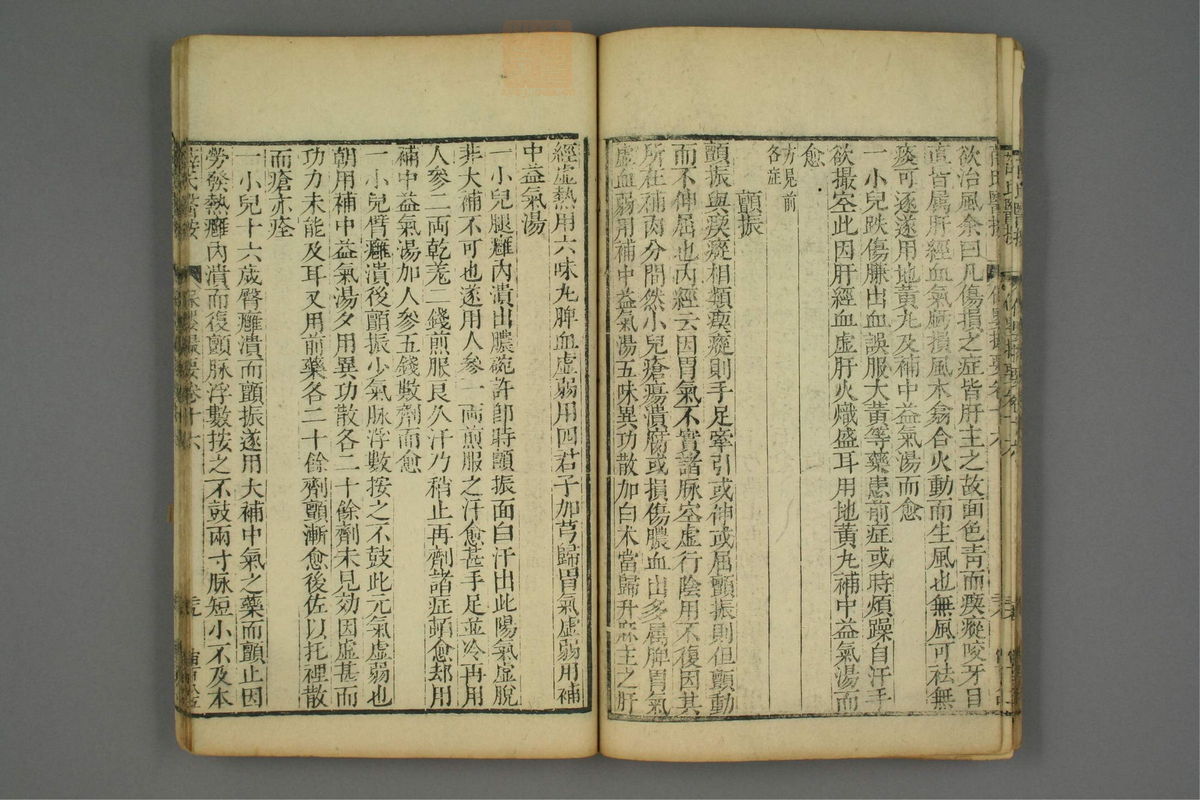 欲治風余曰凡傷損之症皆肝主之故面色青而瘈瘲咬牙目
直皆屬肝經血氣虧損風木翕合火動而生風也無風可祛無
痰可逐遂用地黃丸及補中益氣湯而愈
一小兒跌傷臁出血誤服大黃等藥患前症或時煩躁自汗手
欲撮空此因肝經血虛肝火熾盛耳用地黃丸補中益氣湯而
愈
方見前
各症
顫振
顫振與瘈瘲相類瘈瘲則手足牽引或伸或屈顫振則但顫動
而不伸屈也內經云因胃氣不實諸脉空虛行陰用不復因其
所在補內分間然小兒瘡瘍潰腐或損傷膿血出多屬脾胃氣
虛血弱用補中益氣湯五味異功散加白朮當歸升麻主之肝
經虛熱用六味丸脾血虛弱用四君子加芎歸胃氣虛弱用補
中益氣湯
一小兒腿癰內潰出膿碗許卽時顫振面白汗出此陽氣虛脫
非大補不可也遂用人參一兩煎服之汗愈甚手足並冷再用
人參二兩乾羌二錢煎服良久汗乃稍止再劑諸症頓愈却用
補中益氣湯加人參五錢數劑而愈
一小兒臂癰潰後顫振少氣脉浮數按之不鼓此元氣虛弱也
朝用補中益氣湯夕用異功散各二十餘劑未見効因虛甚而
功力未能及耳又用前藥各二十餘劑顫漸愈後佐以托裡散
而瘡亦痊
一小兒十六歲臀癰潰而顫振遂用大補中氣之藥而顫止因
勞發熱癰內潰而復顫脉浮數按之不鼓兩寸脉短小不及本
薛氏醫按
保嬰撮要卷十六